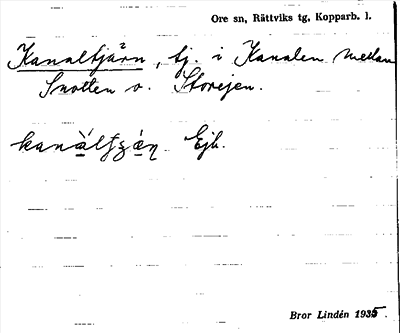 Ore sn, Rättviks tg, Kopparb. l.
Kanaltjärn, tj. i Kanalen mellan
Snotten o. Storejen.
Ejb.
Bror Lindén 1935.